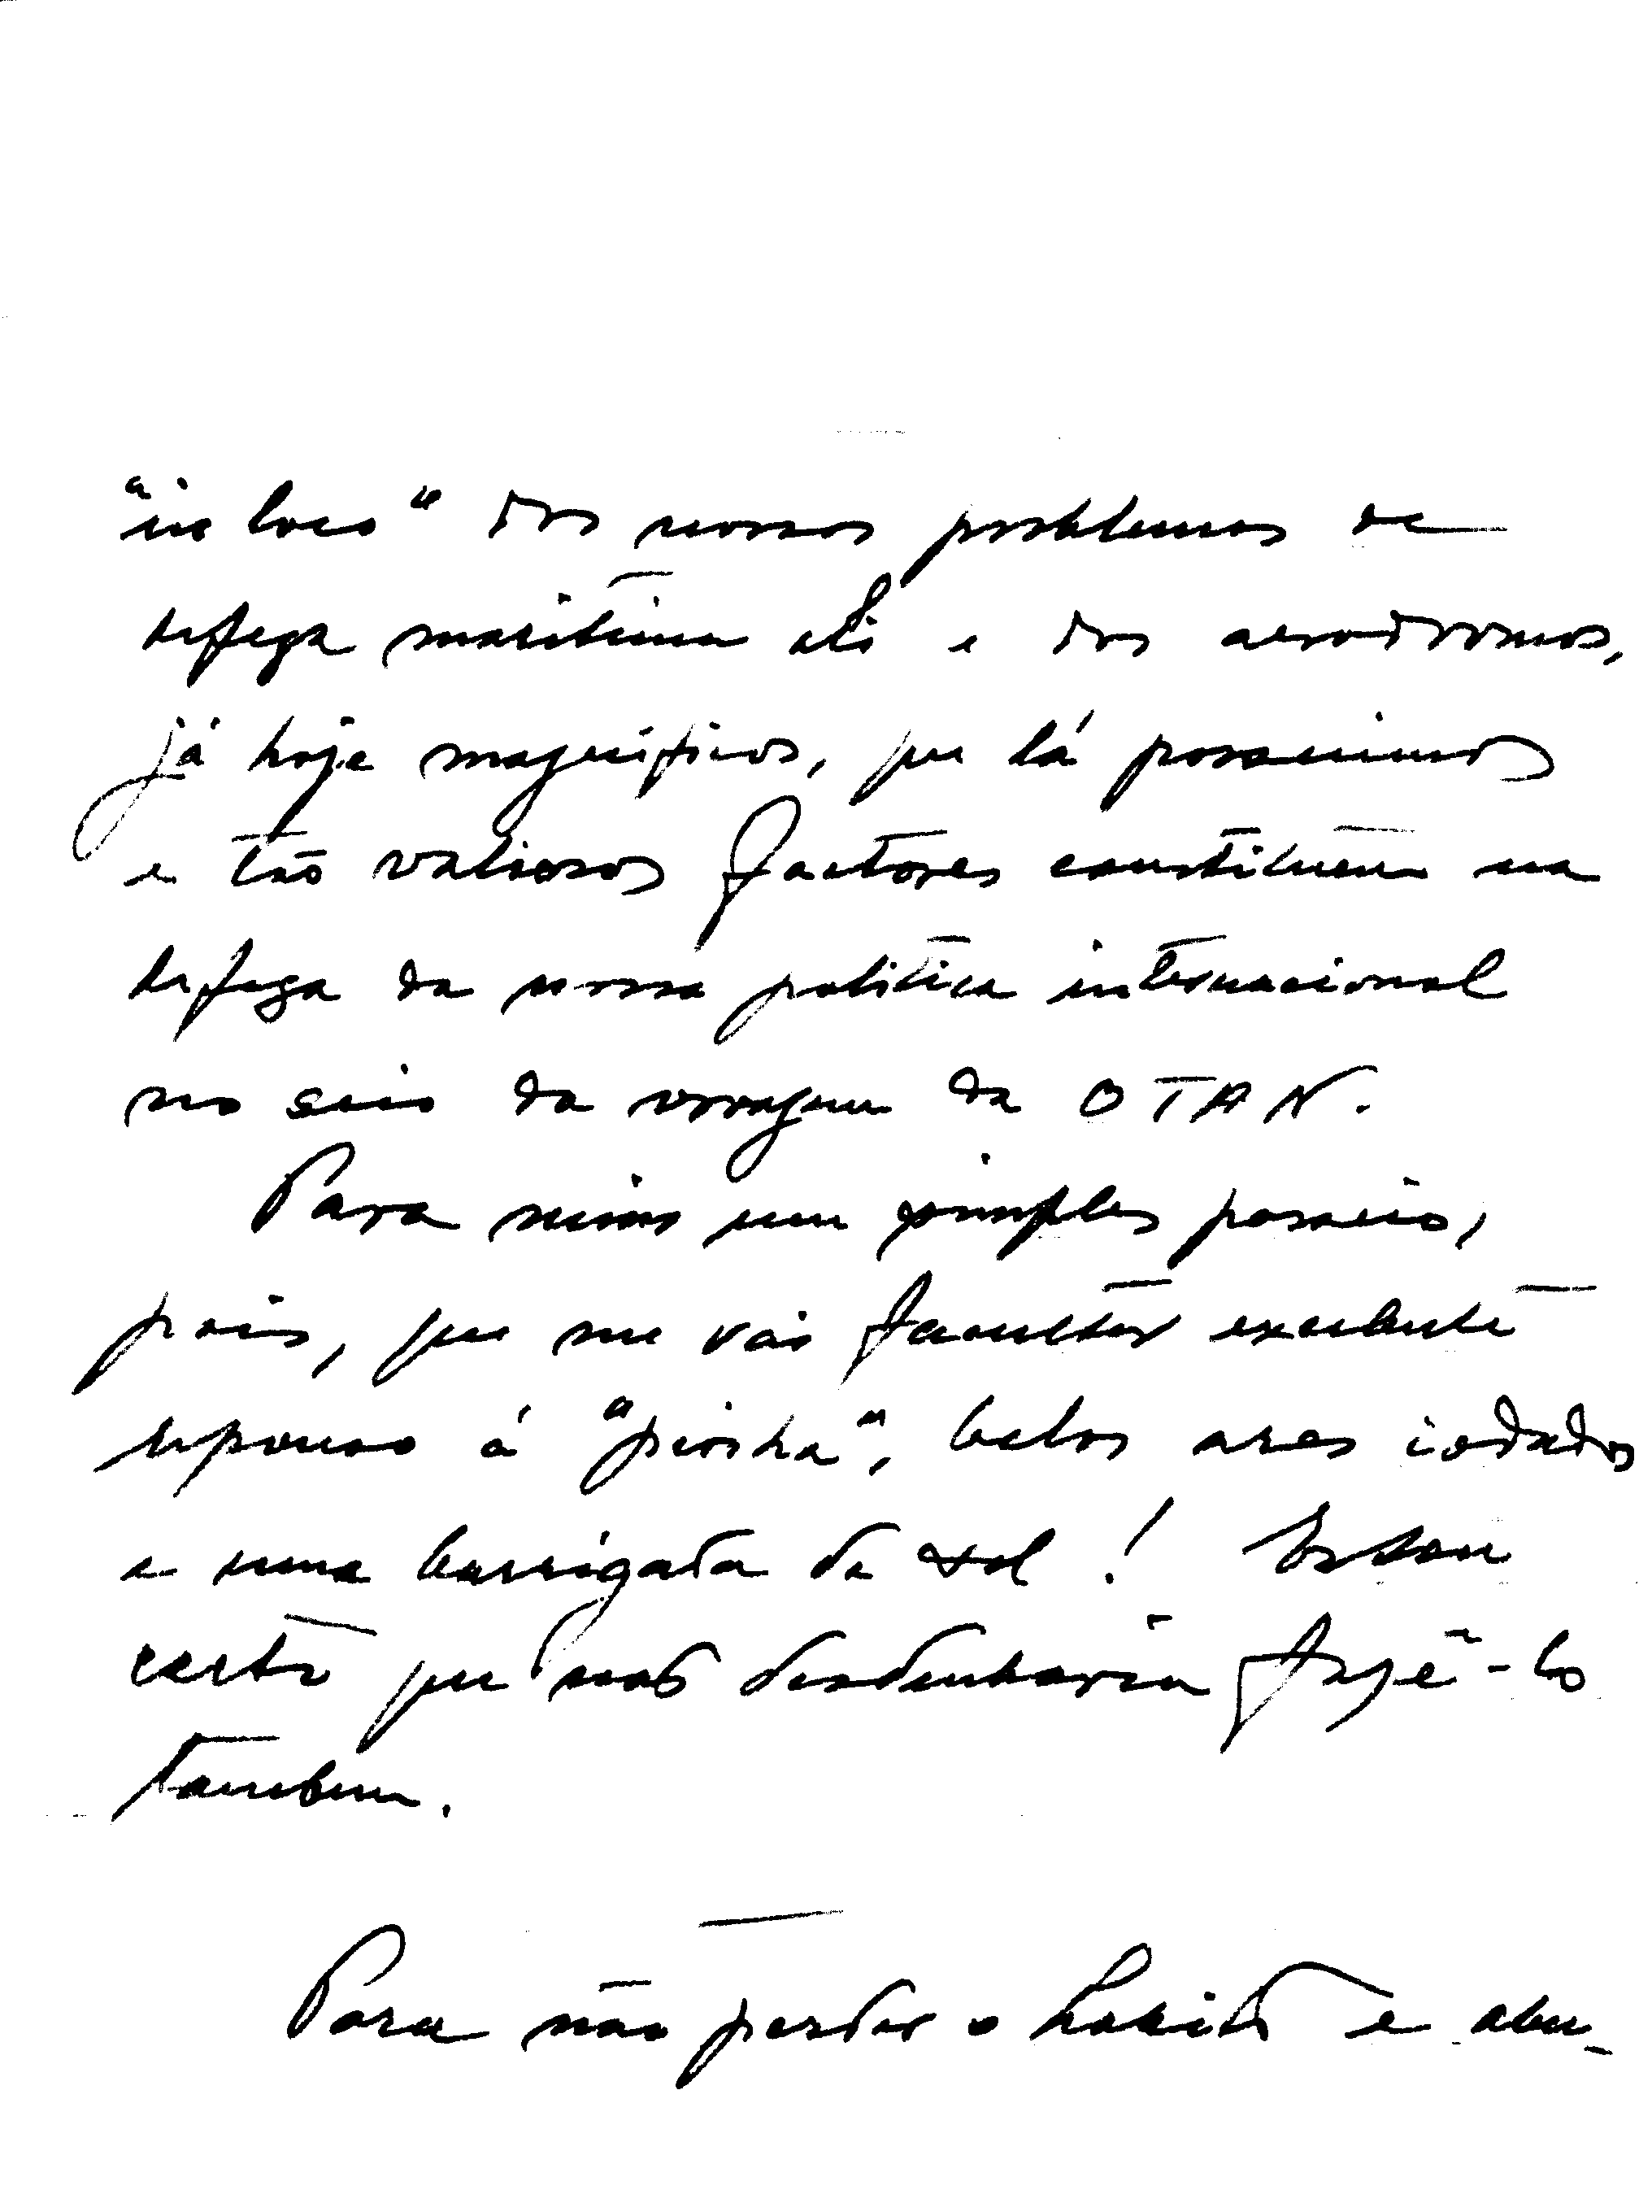 "in loco" dos nossos problemas de
defeza maritima ali e dos aerodromos,
já hoje magníficos, que lá possuimos
e tão valiosos factores constituem na
defeza da nossa politica internacional
no seio da voragem da OTAN.
Para mim um simples passeio,
pois, que me vai facultar excelente
repouso á "pinha", belos ares iodados
e uma barrigada de sol! Estou
certo que não desdenharia fazê-lo
tambem.
Para não perder o habito e abu-